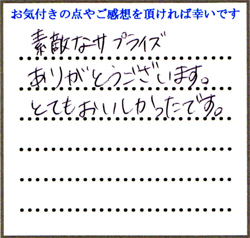 お気付きの点やご感想を頂ければ幸いです
素敵なサプライズ
ありがとうございます。
とてもおいしかったです。